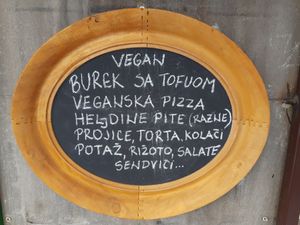 VEGAN
BUREK SA TOFUOM
VEGANSKA PIZZA
HELJDINE PITE (RAZNE)
PROJICE, TORTA, KOLAČI
POTAŽ, RIŽOTO, SALATE
SENDVIČI...